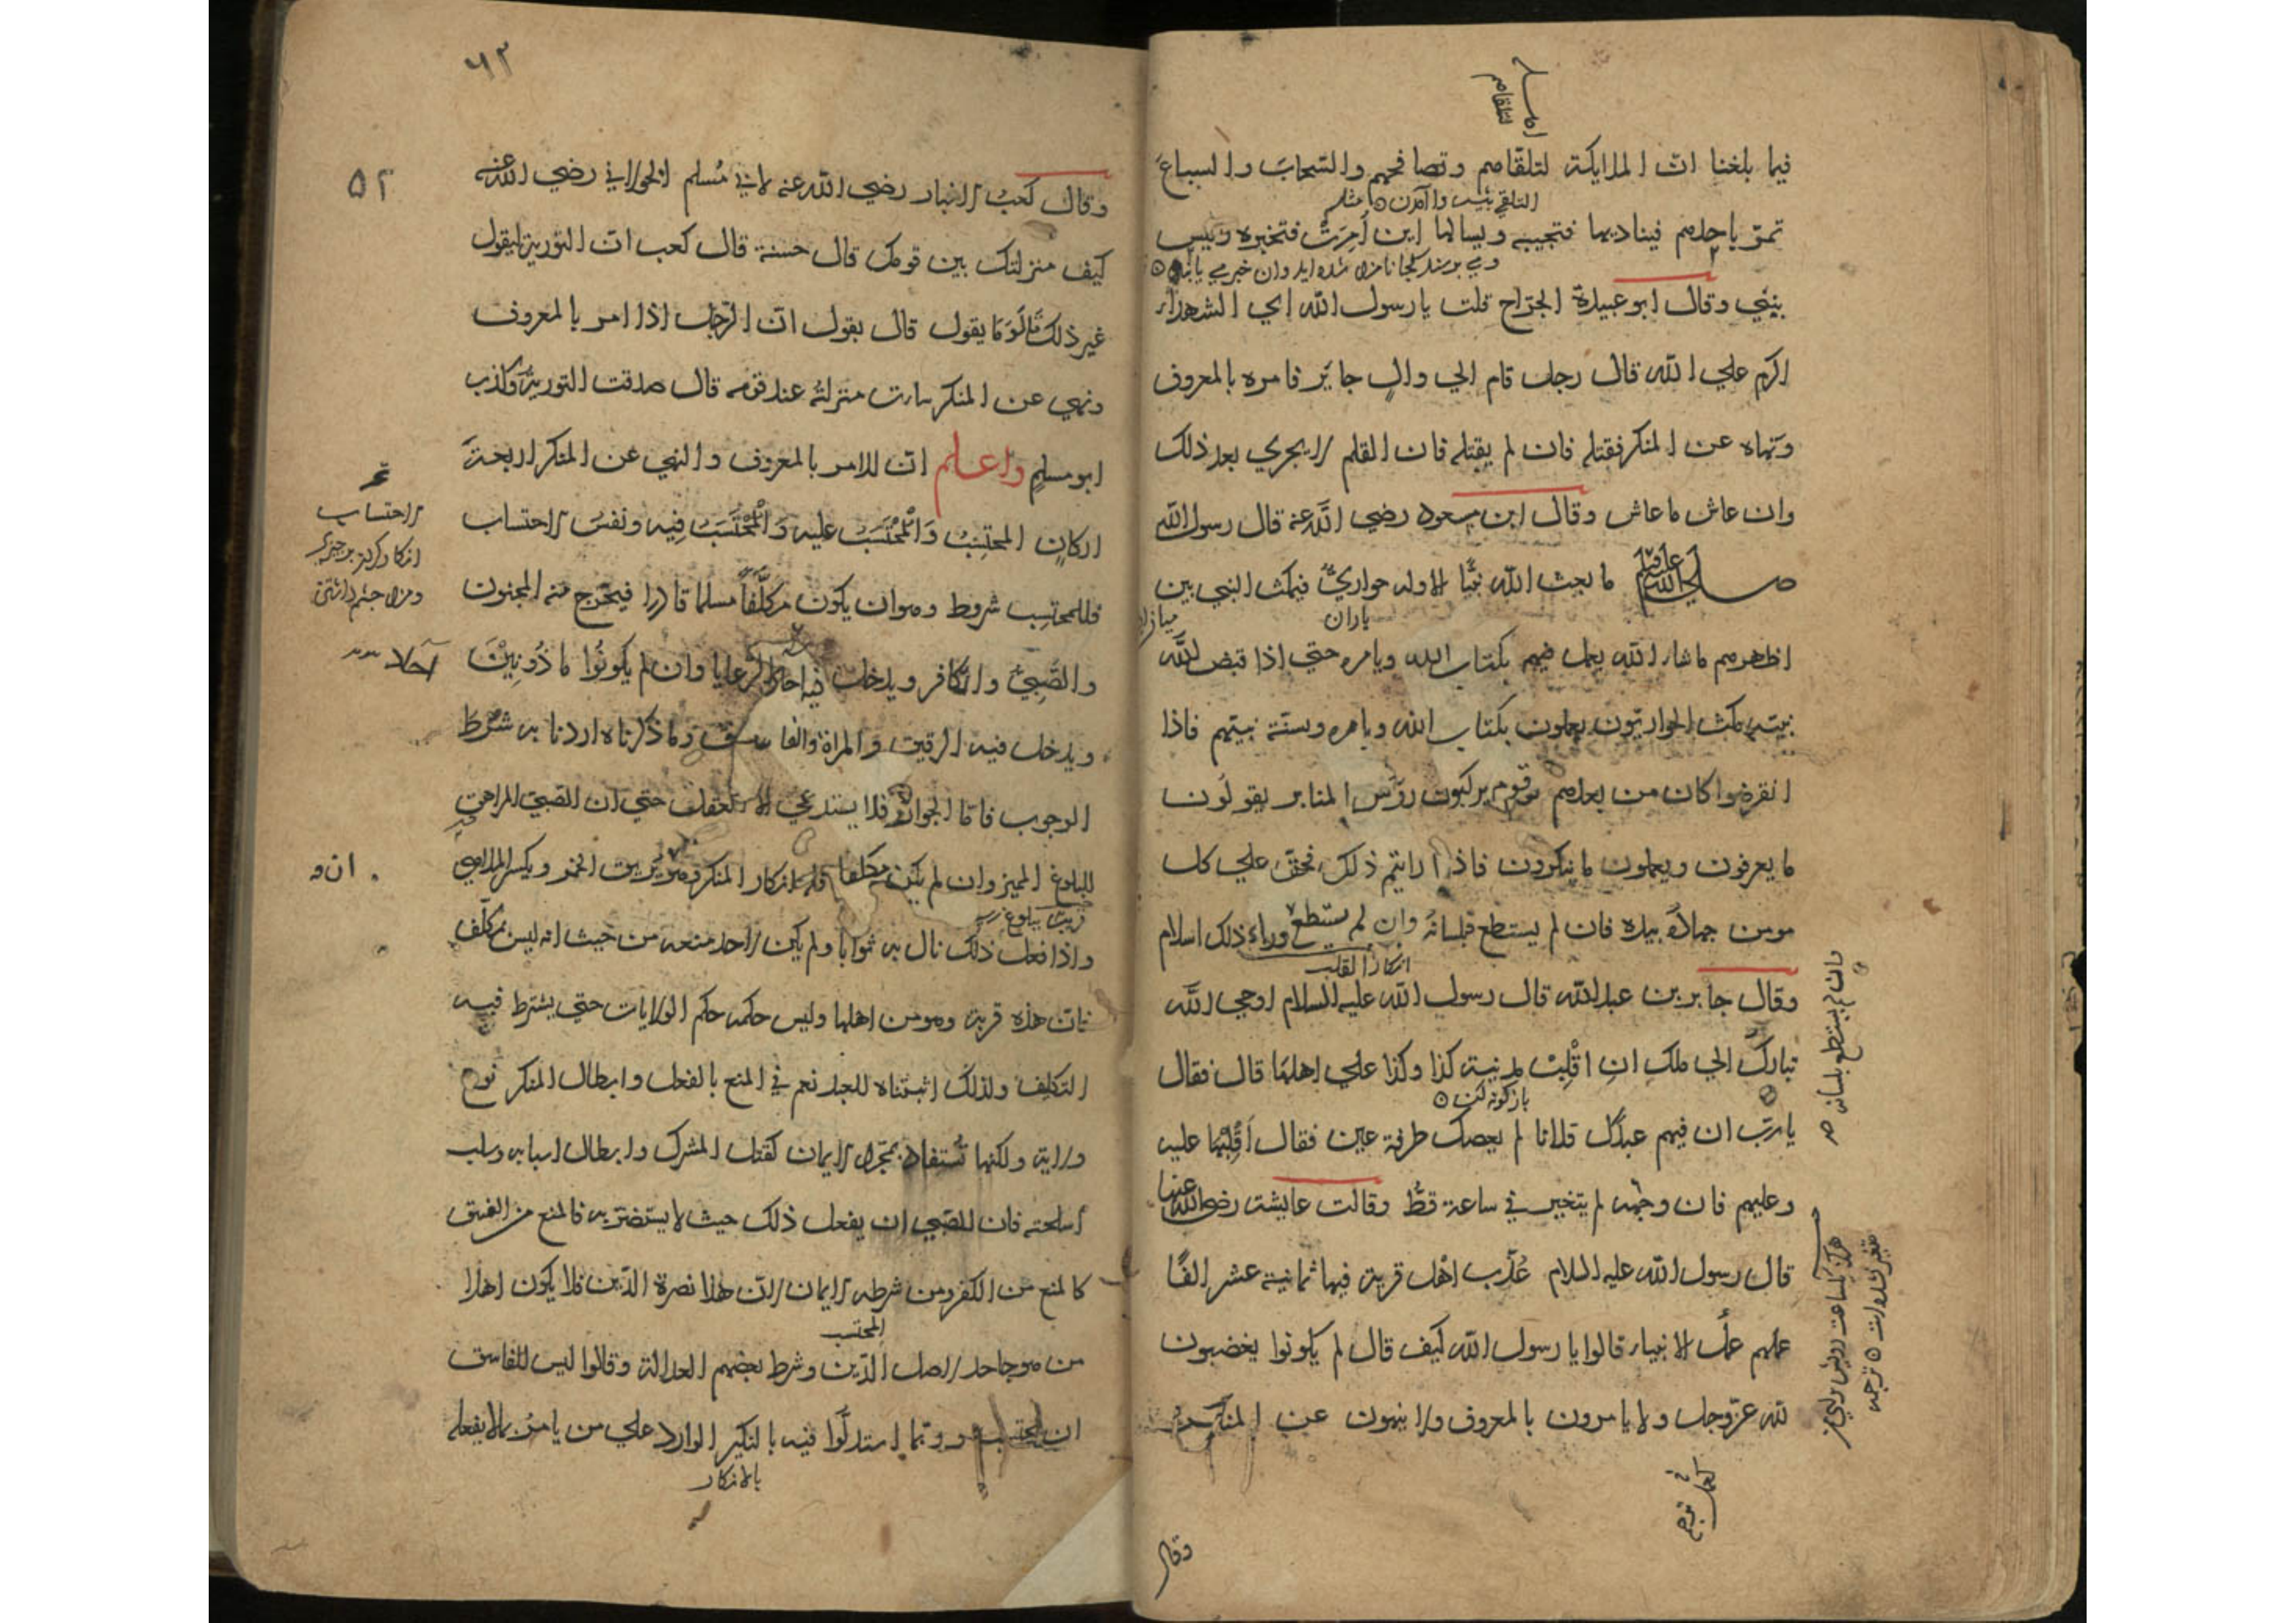 فيما بلغنا ان الملايكة لتلقاهم وتصافحهم والسحاب والسباع
التلقي
تمرّ باحدهم فيناديها فتجيبه ويسالها اين اُمِرَتْ فتخبره وليس
بنبيّ وقال ابو عبيدة الجرّاح قلت يا رسول الله اي الشهداء
اكرم علي الله قال رجل قام الي والٍ جاير فامره بالمعروف
ونهاه عن المنكر فقتله فان لم يقتله فان القلم لا يجري بعد ذلك
وان عاش ما عاش وقال ابن مسعود رضي الله عنه قال رسول الله
صلي الله عليه ما بعث الله نبيّا الا وله حواريّ فيمكث النبي بين
ياران
اظهرهم ما شاء الله يعمل فيهم بكتاب الله وبامره حتي اذا قبض الله
نبيّه مكث الحواريّون يعملون بكتاب الله وبامره وبسنّة نبيّهم فاذا
انقرضوا كان من بعدهم قوم يركبون رؤس المنابر يقولون
ما يعرفون ويعملون ما ينكرون فاذا رايتم ذلك فحقّ علي كل
مومن جهاده بيده فان لم يستطع فبلسانه وان لم يستطع وراء ذلك اسلام
انكار القلب
وقال جابر بن عبد الله قال رسول الله عليه السلام اوحي الله
تبارك الي ملك ان اقْلِبْ مدينة كذا وكذا علي اهلها قال فقال
يا ربّ ان فيهم عبدك فلانا لم يعصك طرفة عين فقال اَقْلِبْها عليه
وعليهم فان وجهه لم يتغير في ساعة قطّ وقالت عايشة رضي الله عنها
قال رسول الله عليه السلام عُذّب اهل قرية فيها ثمانية عشر الفًا
عملهم عمل الانبياء قالوا يا رسول الله كيف قال لم يكونوا يغضبون
لله عزّ وجل ولا يامرون بالمعروف ولا ينهون عن المنكر
وان لم يستطع بلسانه
وقال
٦٢
٥٢
وقال كعب الاحبار رضي الله عنه لابي مُسلم الخولاني رضي الله عنه
كيف منزلتك بين قومك قال حسنة قال كعب ان التورية ليقول
غير ذلك قال وما يقول قال يقول ان الرّجل اذا امر بالمعروف
ونهي عن المنكر ساءت منزلتُه عند قومه قال صدقت التورية وكذب
ابو مسلم واعلم انّ للامر بالمعروف والنهي عن المنكر اربعة
اركانٍ المحتسِبُ وَالْمُحْتَسَبُ عليه وَالْمُحْتَسَبُ فيه ونفسُ الاحتساب
الاحتساب
فللمحتسِب شروط وهو ان يكون مكلَّفًا مسلما قادرا فيخرج منه المجنون
والصَّبيّ والكافر ويدخل فيه احاد الرّعايا وان لم يكونُوا ماذُونِيْنَ
ويدخل فيه الرقيق والمراة والفاسق وما ذكرناه اردنا به شرط
الوجوب فاما الجواز فلا يستدعي الا العقل حتي ان الصبيّ المراهق
للبلوغ المميز وان لم يكن مكلفا فله انكار المنكر وهو يريق الخمر ويكسر الملاهي
واذا فعل ذلك نال به ثوابا ولم يكن لاحد منعه من حيث انه ليس بمكلّف
فانّ هذه قربة وهو من اهلها وليس حكمه حكم الولايات حتي يشترط فيه
التكليف ولذلك اثبتناه للعبد نعم في المنع بالفعل وابطال المنكر نوع
ولاية ولكنها تُستفاد بمجرّد الايمان كقتل المشرك وابطال اسبابه وسلب
اسلحته فان للصّبي ان يفعل ذلك حيث لا يستضرّ به فالمنع من الفسق
كالمنع من الكفر ومن شرطه الايمان لانّ هذا نصرة الدّين فلا يكون اهلا
المحتسب
من هو جاحد لاصل الدّين وشرط بعضهم العدالة وقالوا ليس للفاسق
ان يحتسب وربّما استدلّوا فيه بالنكير الوارد علي من يامر بما لا يفعله
بالانكار